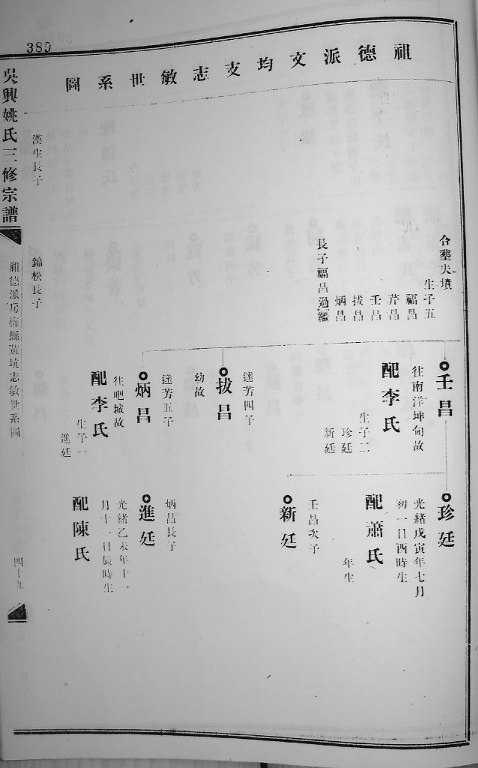 380
祖德派文均支志敏世系圖
吳興姚氏三修宗譜
合葬夫墳
生子五
福昌
芹昌
壬昌
拔昌
炳昌
長子福昌過繼
漢生長子
錦松長子
壬昌
往南洋坤甸故
配李氏
生子二
珍廷
新廷
達芳四子
拔昌
幼故
達芳五子
炳昌
往吧城故
配李氏
生子一
進廷
珍廷
光緒戊寅年七月
初一日酉時生
配蕭氏
年生
壬昌次子
新廷
炳昌長子
進廷
光緒乙未年十一
月十一日辰時生
配陳氏
祖德派房梅縣黃坑志敏世系圖
四十九